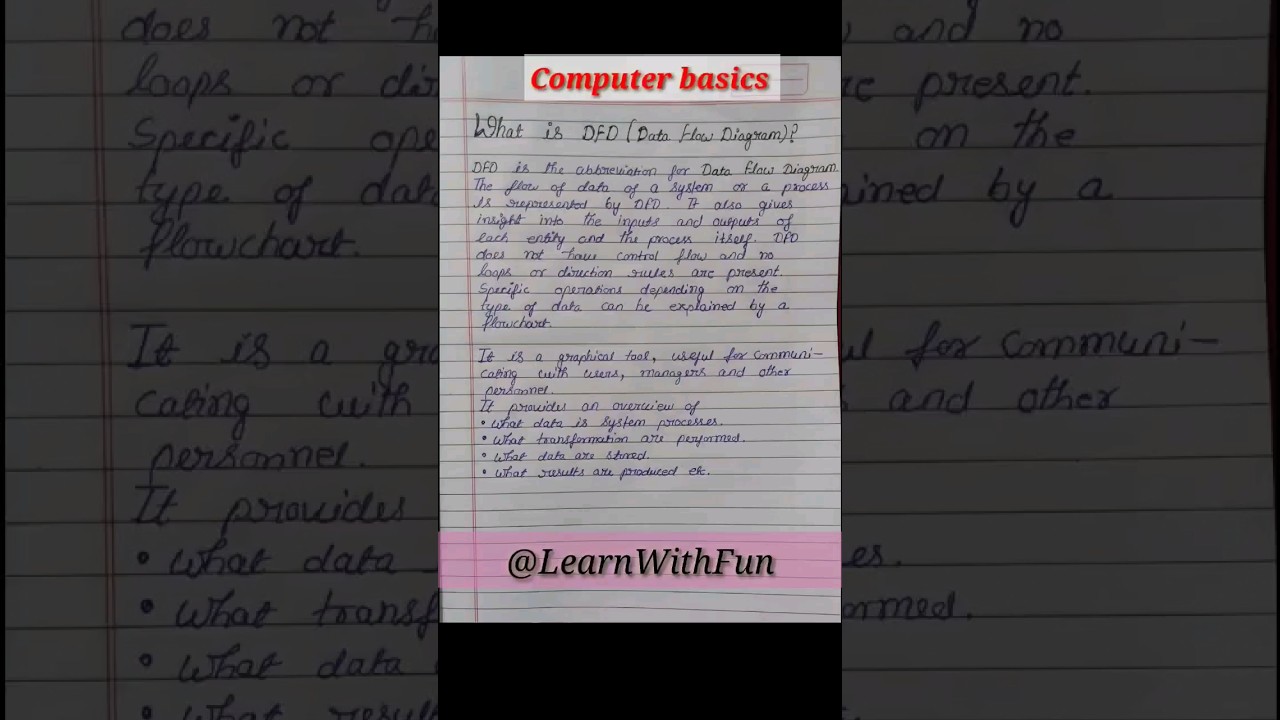 Computer basics
What is DFD (Data Flow Diagram)?
DFD is the abbreviation for Data Flow Diagram.
The flow of data of a system or a process
is represented by DFD. It also gives
insight into the inputs and outputs of
each entity and the process itself. DFD
does not have control flow and no
loops or direction rules are present.
Specific operations depending on the
type of data can be explained by a
flowchart.
It is a graphical tool, useful for communi-
cating with users, managers and other
personnel.
It provides an overview of
• What data is system processes.
• What transformation are performed.
• What data are stored.
• What results are produced etc.
@LearnWithFun